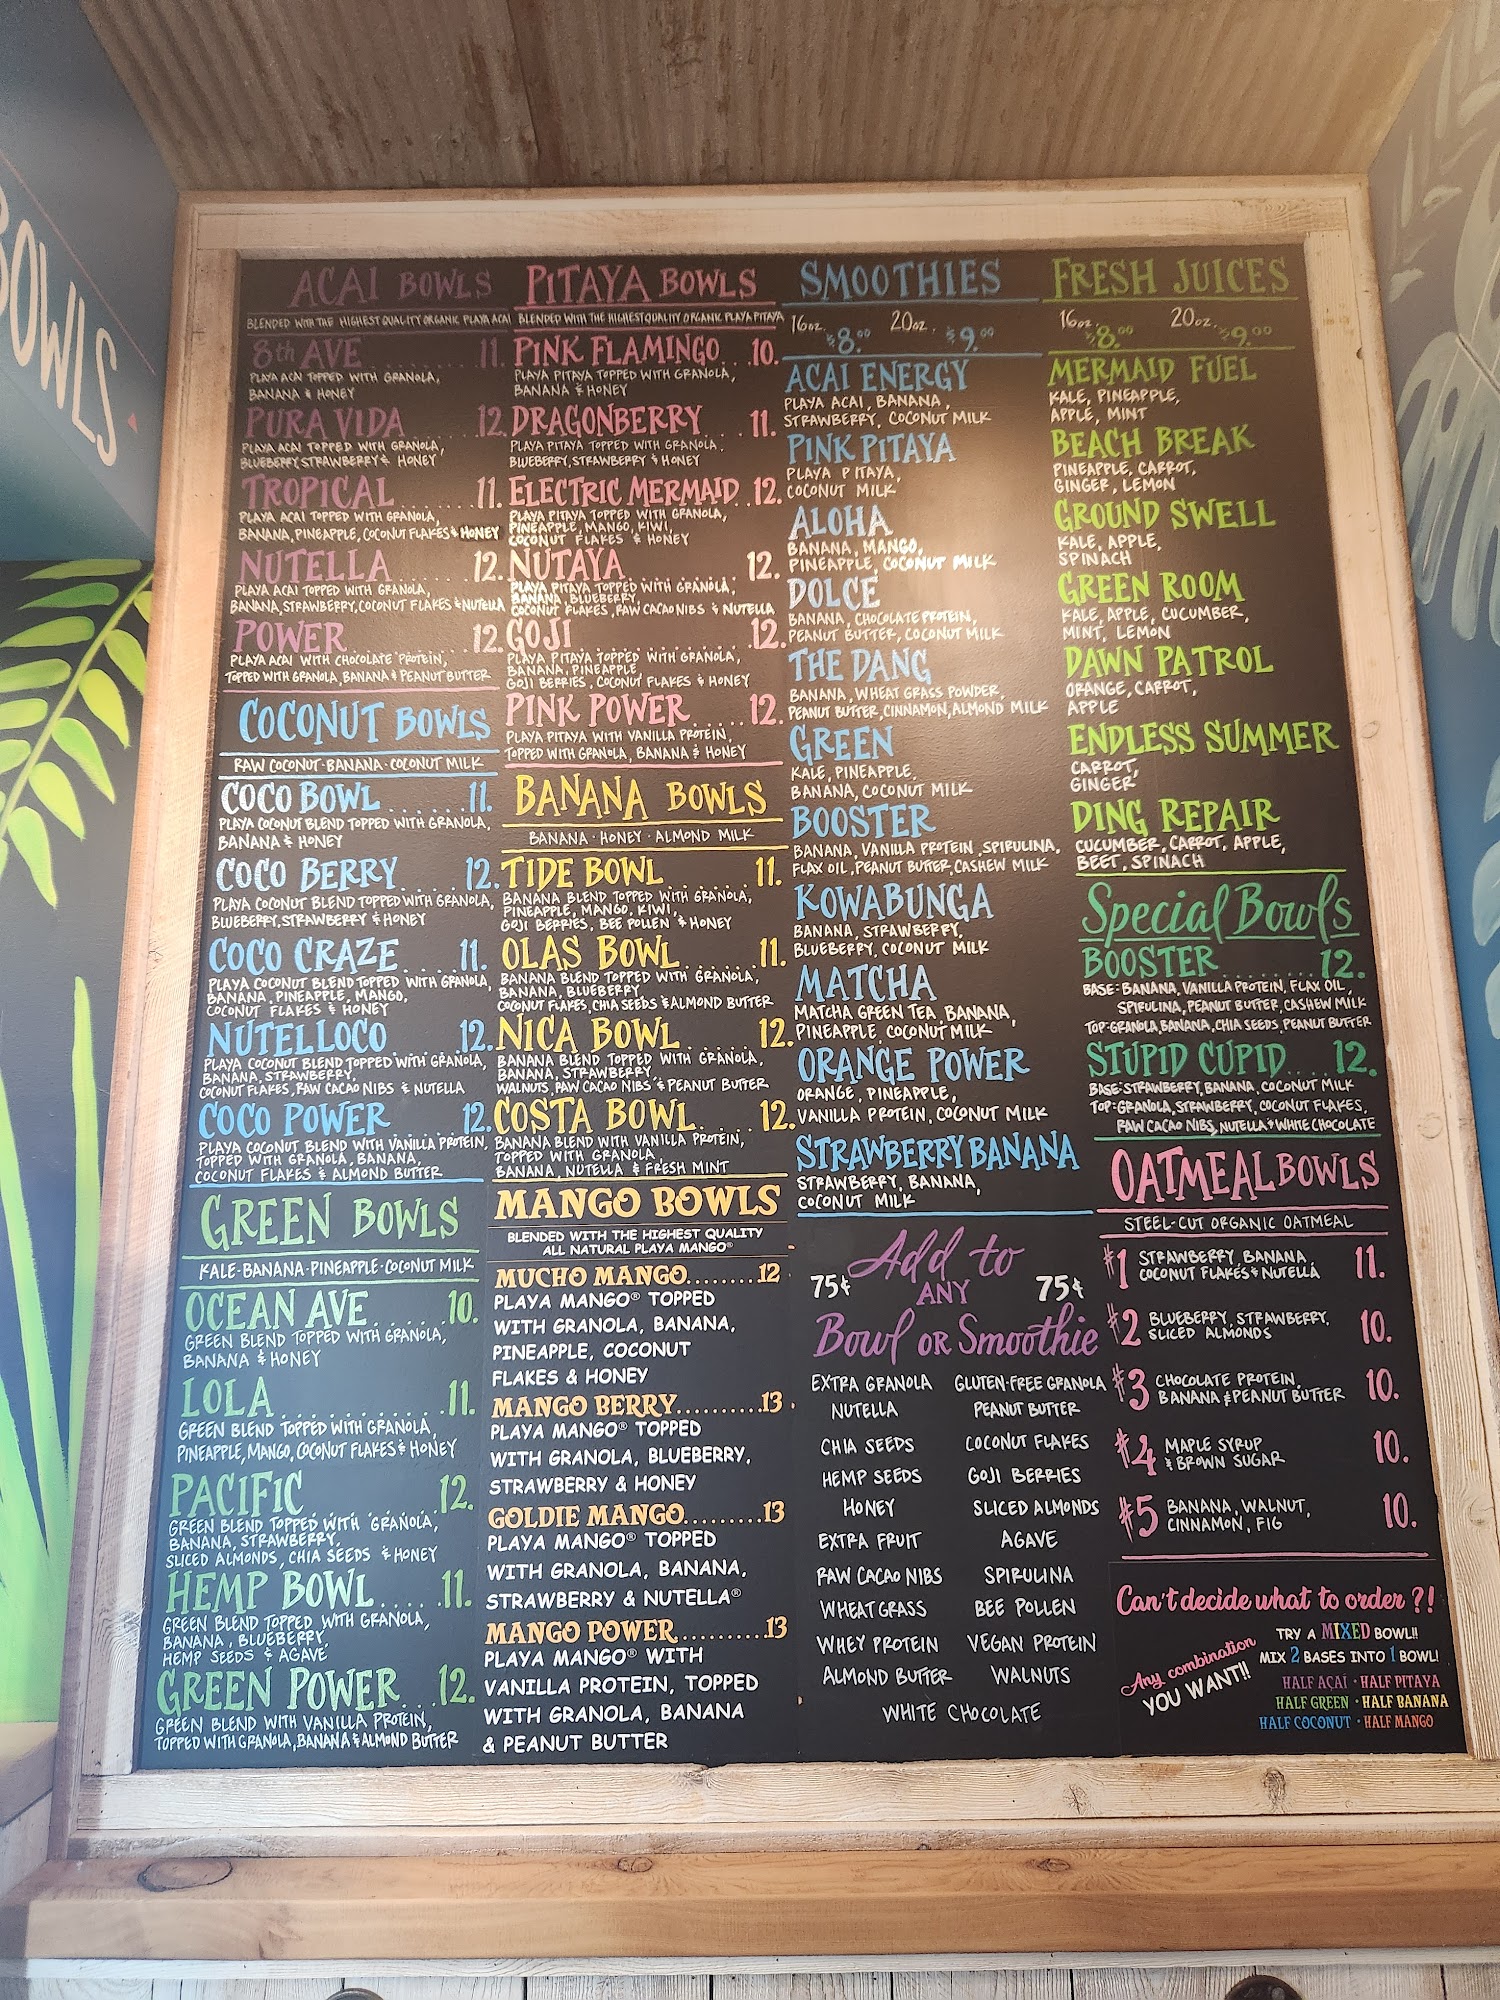 BOWLS
ACAI BOWLS
BLENDED WITH THE HIGHEST QUALITY ORGANIC PLAYA ACAI
8th AVE 11.
PLAYA ACAI TOPPED WITH GRANOLA,
BANANA & HONEY
PURA VIDA 12.
PLAYA ACAI TOPPED WITH GRANOLA,
BLUEBERRY, STRAWBERRY & HONEY
TROPICAL 11.
PLAYA ACAI TOPPED WITH GRANOLA,
BANANA, PINEAPPLE, COCONUT FLAKES & HONEY
NUTELLA 12.
PLAYA ACAI TOPPED WITH GRANOLA,
BANANA, STRAWBERRY, COCONUT FLAKES & NUTELLA
POWER 12.
PLAYA ACAI WITH CHOCOLATE PROTEIN,
TOPPED WITH GRANOLA, BANANA & PEANUT BUTTER
COCONUT BOWLS
RAW COCONUT · BANANA · COCONUT MILK
COCO BOWL ...... 11.
PLAYA COCONUT BLEND TOPPED WITH GRANOLA,
BANANA & HONEY
COCO BERRY .... 12.
PLAYA COCONUT BLEND TOPPED WITH GRANOLA,
BLUEBERRY, STRAWBERRY & HONEY
COCO CRAZE ..... 11.
PLAYA COCONUT BLEND TOPPED WITH GRANOLA,
BANANA, PINEAPPLE, MANGO,
COCONUT FLAKES & HONEY
NUTELLOCO 12.
PLAYA COCONUT BLEND TOPPED WITH GRANOLA,
BANANA, STRAWBERRY,
COCONUT FLAKES, RAW CACAO NIBS & NUTELLA
COCO POWER 12.
PLAYA COCONUT BLEND WITH VANILLA PROTEIN,
TOPPED WITH GRANOLA, BANANA,
COCONUT FLAKES & ALMOND BUTTER
GREEN BOWLS
KALE · BANANA · PINEAPPLE · COCONUT MILK
OCEAN AVE ..... 10.
GREEN BLEND TOPPED WITH GRANOLA,
BANANA & HONEY
LOLA ............. 11.
GREEN BLEND TOPPED WITH GRANOLA,
PINEAPPLE, MANGO, COCONUT FLAKES & HONEY
PACIFIC 12.
GREEN BLEND TOPPED WITH GRANOLA,
BANANA, STRAWBERRY,
SLICED ALMONDS, CHIA SEEDS & HONEY
HEMP BOWL ..... 11.
GREEN BLEND TOPPED WITH GRANOLA,
BANANA, BLUEBERRY
HEMP SEEDS & AGAVE
GREEN POWER ... 12.
GREEN BLEND WITH VANILLA PROTEIN,
TOPPED WITH GRANOLA, BANANA & ALMOND BUTTER
PITAYA BOWLS
BLENDED WITH THE HIGHEST QUALITY ORGANIC PLAYA PITAYA
PINK FLAMINGO .. 10.
PLAYA PITAYA TOPPED WITH GRANOLA,
BANANA & HONEY
DRAGONBERRY ... 11.
PLAYA PITAYA TOPPED WITH GRANOLA,
BLUEBERRY, STRAWBERRY & HONEY
ELECTRIC MERMAID .. 12.
PLAYA PITAYA TOPPED WITH GRANOLA,
PINEAPPLE, MANGO, KIWI,
COCONUT FLAKES & HONEY
NUTAYA 12.
PLAYA PITAYA TOPPED WITH GRANOLA,
BANANA, BLUEBERRY,
COCONUT FLAKES, RAW CACAO NIBS & NUTELLA
GOJI 12.
PLAYA PITAYA TOPPED WITH GRANOLA,
BANANA, PINEAPPLE
GOJI BERRIES, COCONUT FLAKES & HONEY
PINK POWER ..... 12.
PLAYA PITAYA WITH VANILLA PROTEIN,
TOPPED WITH GRANOLA, BANANA & HONEY
BANANA BOWLS
BANANA · HONEY · ALMOND MILK
TIDE BOWL 11.
BANANA BLEND TOPPED WITH GRANOLA,
PINEAPPLE, MANGO, KIWI,
GOJI BERRIES, BEE POLLEN & HONEY
OLAS BOWL 11.
BANANA BLEND TOPPED WITH GRANOLA,
BANANA, BLUEBERRY
COCONUT FLAKES, CHIA SEEDS & ALMOND BUTTER
NICA BOWL 12.
BANANA BLEND TOPPED WITH GRANOLA,
BANANA, STRAWBERRY,
WALNUTS, RAW CACAO NIBS & PEANUT BUTTER
COSTA BOWL 12.
BANANA BLEND WITH VANILLA PROTEIN,
TOPPED WITH GRANOLA
BANANA, NUTELLA & FRESH MINT
MANGO BOWLS
BLENDED WITH THE HIGHEST QUALITY
ALL NATURAL PLAYA MANGO®
MUCHO MANGO........12
PLAYA MANGO® TOPPED
WITH GRANOLA, BANANA,
PINEAPPLE, COCONUT
FLAKES & HONEY
MANGO BERRY..........13
PLAYA MANGO® TOPPED
WITH GRANOLA, BLUEBERRY,
STRAWBERRY & HONEY
GOLDIE MANGO.........13
PLAYA MANGO® TOPPED
WITH GRANOLA, BANANA,
STRAWBERRY & NUTELLA®
MANGO POWER..........13
PLAYA MANGO® WITH
VANILLA PROTEIN, TOPPED
WITH GRANOLA, BANANA
& PEANUT BUTTER
SMOOTHIES
16oz. $8.00 20oz. $9.00
ACAI ENERGY
PLAYA ACAI, BANANA,
STRAWBERRY, COCONUT MILK
PINK PITAYA
PLAYA PITAYA,
COCONUT MILK
ALOHA
BANANA, MANGO,
PINEAPPLE, COCONUT MILK
DOLCE
BANANA, CHOCOLATE PROTEIN,
PEANUT BUTTER, COCONUT MILK
THE DANG
BANANA, WHEAT GRASS POWDER,
PEANUT BUTTER, CINNAMON, ALMOND MILK
GREEN
KALE, PINEAPPLE,
BANANA, COCONUT MILK
BOOSTER
BANANA, VANILLA PROTEIN, SPIRULINA,
FLAX OIL, PEANUT BUTTER, CASHEW MILK
KOWABUNGA
BANANA, STRAWBERRY,
BLUEBERRY, COCONUT MILK
MATCHA
MATCHA GREEN TEA, BANANA,
PINEAPPLE, COCONUT MILK
ORANGE POWER
ORANGE, PINEAPPLE,
VANILLA PROTEIN, COCONUT MILK
STRAWBERRY BANANA
STRAWBERRY, BANANA,
COCONUT MILK
Add to
75¢ ANY 75¢
Bowl OR Smoothie
EXTRA GRANOLA GLUTEN-FREE GRANOLA
NUTELLA PEANUT BUTTER
CHIA SEEDS COCONUT FLAKES
HEMP SEEDS GOJI BERRIES
HONEY SLICED ALMONDS
EXTRA FRUIT AGAVE
RAW CACAO NIBS SPIRULINA
WHEAT GRASS BEE POLLEN
WHEY PROTEIN VEGAN PROTEIN
ALMOND BUTTER WALNUTS
WHITE CHOCOLATE
FRESH JUICES
16oz. $8.00 20oz. $9.00
MERMAID FUEL
KALE, PINEAPPLE,
APPLE, MINT
BEACH BREAK
PINEAPPLE, CARROT,
GINGER, LEMON
GROUND SWELL
KALE, APPLE,
SPINACH
GREEN ROOM
KALE, APPLE, CUCUMBER,
MINT, LEMON
DAWN PATROL
ORANGE, CARROT,
APPLE
ENDLESS SUMMER
CARROT,
GINGER
DING REPAIR
CUCUMBER, CARROT, APPLE,
BEET, SPINACH
Special Bowls
BOOSTER ........ 12.
BASE: BANANA, VANILLA PROTEIN, FLAX OIL,
SPIRULINA, PEANUT BUTTER, CASHEW MILK
TOP: GRANOLA, BANANA, CHIA SEEDS, PEANUT BUTTER
STUPID CUPID .... 12.
BASE: STRAWBERRY, BANANA, COCONUT MILK
TOP: GRANOLA, STRAWBERRY, COCONUT FLAKES,
RAW CACAO NIBS, NUTELLA & WHITE CHOCOLATE
OATMEAL BOWLS
STEEL-CUT ORGANIC OATMEAL
#1 STRAWBERRY, BANANA 11.
COCONUT FLAKES & NUTELLA
#2 BLUEBERRY, STRAWBERRY, 10.
SLICED ALMONDS
#3 CHOCOLATE PROTEIN, 10.
BANANA & PEANUT BUTTER
#4 MAPLE SYRUP 10.
& BROWN SUGAR
#5 BANANA, WALNUT, 10.
CINNAMON, FIG
Can't decide what to order?!
TRY A MIXED BOWL!!
MIX 2 BASES INTO 1 BOWL!
Any combination
YOU WANT!!
HALF AÇAÍ · HALF PITAYA
HALF GREEN · HALF BANANA
HALF COCONUT · HALF MANGO